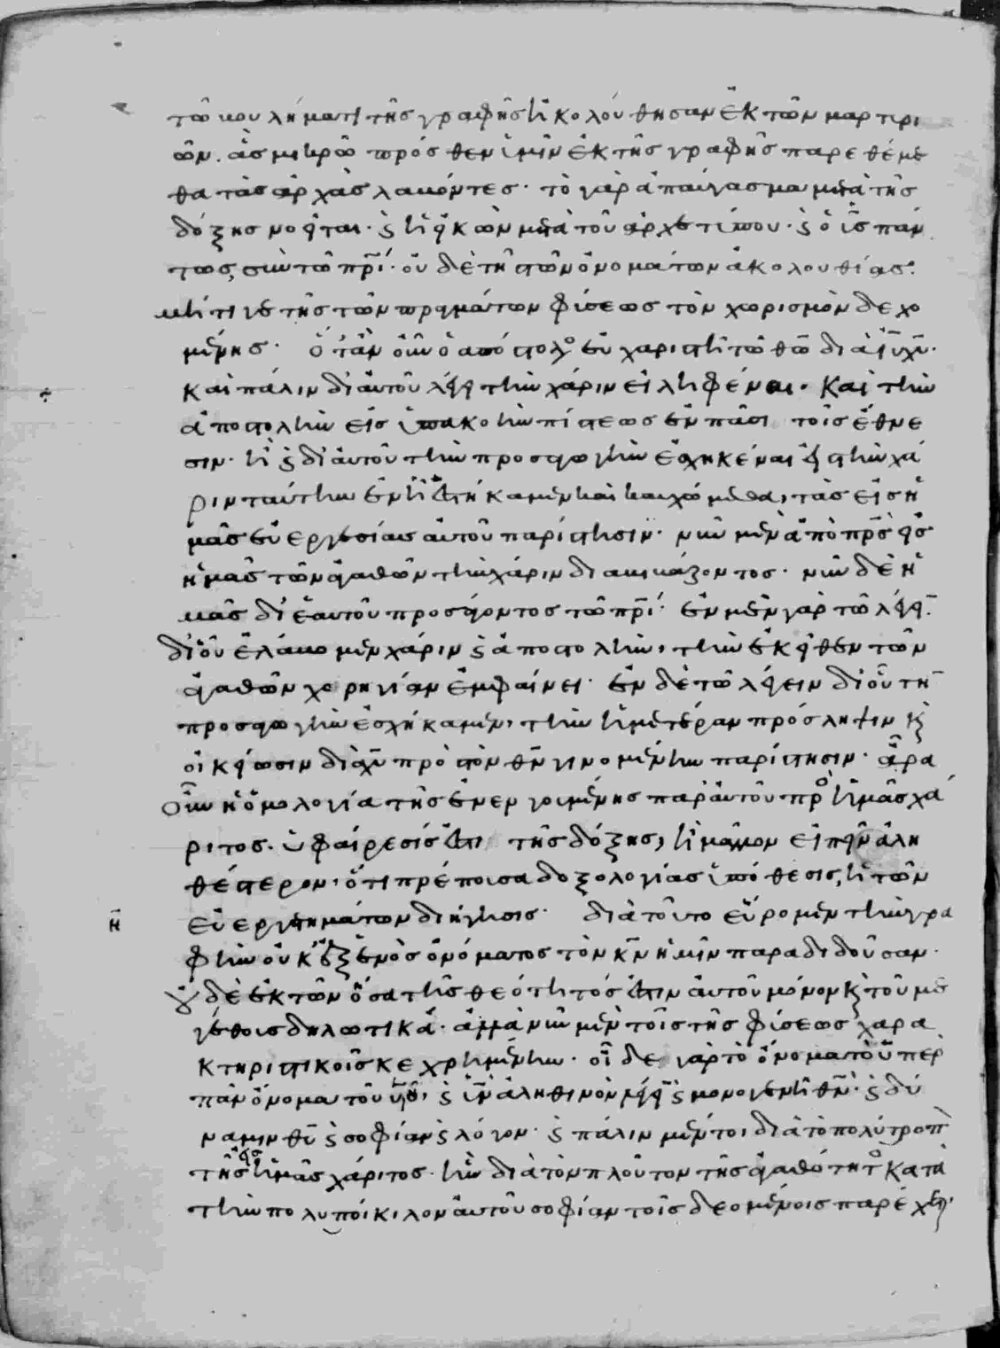 τῶ βουλήματι τῆς γραφῆς ἠκολούθησαν ἐκ τῶν μαρτυρι
ῶν. ἃς μικρῶ πρόσθεν ὑμῖν ἐκ τῆς γραφῆς παρεθέμε
θα τὰς ἀρχὰς λαβόντες. τὸ γὰρ ἀπαύγασμα μετὰ τῆς
δόξης νοεῖται. καὶ ἡ εἰκὼν μετὰ τοῦ ἀρχετύπου. καὶ ὁ υἱς πάν
τως σὺν τῶ πρί. οὐδὲ τῆς τῶν ὀνομάτων ἀκολουθίας.
μήτι γε τῆς τῶν πραγμάτων φύσεως τὸν χωρισμὸν δεχο
μένης. ὅταν οὖν ὁ ἀπόστολος εὐχαριστῆ τῶ θῶ διὰ ιυ χυ.
καὶ πάλιν δι αὐτοῦ λέγει τὴν χάριν εἰληφέναι. καὶ τὴν
ἀποστολὴν εἰς ὑπακοὴν πίστεως ἐν πᾶσι τοῖς ἔθνε
σιν. ἢ καὶ δι αὐτοῦ τὴν προσαγωγὴν ἐσχηκέναι εἰς τὴν χά
ριν ταύτην ἐν ἧ ἑστήκαμεν καὶ καυχώμεθα, τὰς εἰς ἡ
μᾶς εὐεργεσίας αὐτοῦ παρίστησιν. νῦν μὲν ἀπὸ πρς εἰς
ἡμᾶς τῶν ἀγαθῶν τὴν χάριν διαβιβάζοντος. νῦν δὲ ἡ
μᾶς δι ἑαυτοῦ προσάγοντος τῶ πρί. ἐν μὲν γὰρ τῶ λέγειν.
δι οὗ ἐλάβομεν χάριν καὶ ἀποστολήν, τὴν ἐκεῖθεν τῶν
ἀγαθῶν χορηγίαν ἐμφαίνει. ἐν δὲ τῶ λέγειν δι οὗ τὴν
προσαγωγὴν ἐσχήκαμεν, τὴν ἡμετέραν πρόσληψιν καὶ
οἰκείωσιν διὰ χυ πρὸς τὸν θν γινομένην παρίστησιν. ἆρα
οὖν ἡ ὁμολογία τῆς ἐνεργουμένης παρ αὐτοῦ πρὸς ἡμᾶς χά
ριτος. ὑφαίρεσίς ἐστι τῆς δόξης, ἢ μᾶλλον εἰπεῖν ἀλη
θέστερον, ὅτι πρέπουσα δοξολογίας ὑπόθεσις, ἡ τῶν
εὐεργετημάτων διήγησις. διὰ τοῦτο εὕρομεν τὴν γρα
φὴν οὐκ ἐξ ἑνὸς ὀνόματος τὸν κν ἡμῖν παραδιδοῦσαν.
οὐδὲ ἐκ τῶν ὅσα τῆς θεότητός ἐστιν αὐτοῦ μόνον καὶ τοῦ με
γέθους δηλωτικά. ἀλλὰ νῦν μὲν τοῖς τῆς φύσεως χαρα
κτηριστικοῖς κεχρημένην. οἶδε γὰρ τὸ ὄνομα τὸ ὑπὲρ
πᾶν ὄνομα τοῦ υἱοῦ, καὶ υἱν ἀληθινὸν λέγειν καὶ μονογενῆ θν. καὶ δύ
ναμιν θυ καὶ σοφίαν καὶ λόγον. καὶ πάλιν μέντοι διὰ τὸ πολύτροπον
τῆς εἰς ἡμᾶς χάριτος. ἣν διὰ τὸν πλοῦτον τῆς ἀγαθότητος κατὰ
τὴν πολυποίκιλον αὐτοῦ σοφίαν τοῖς δεομένοις παρέχει.